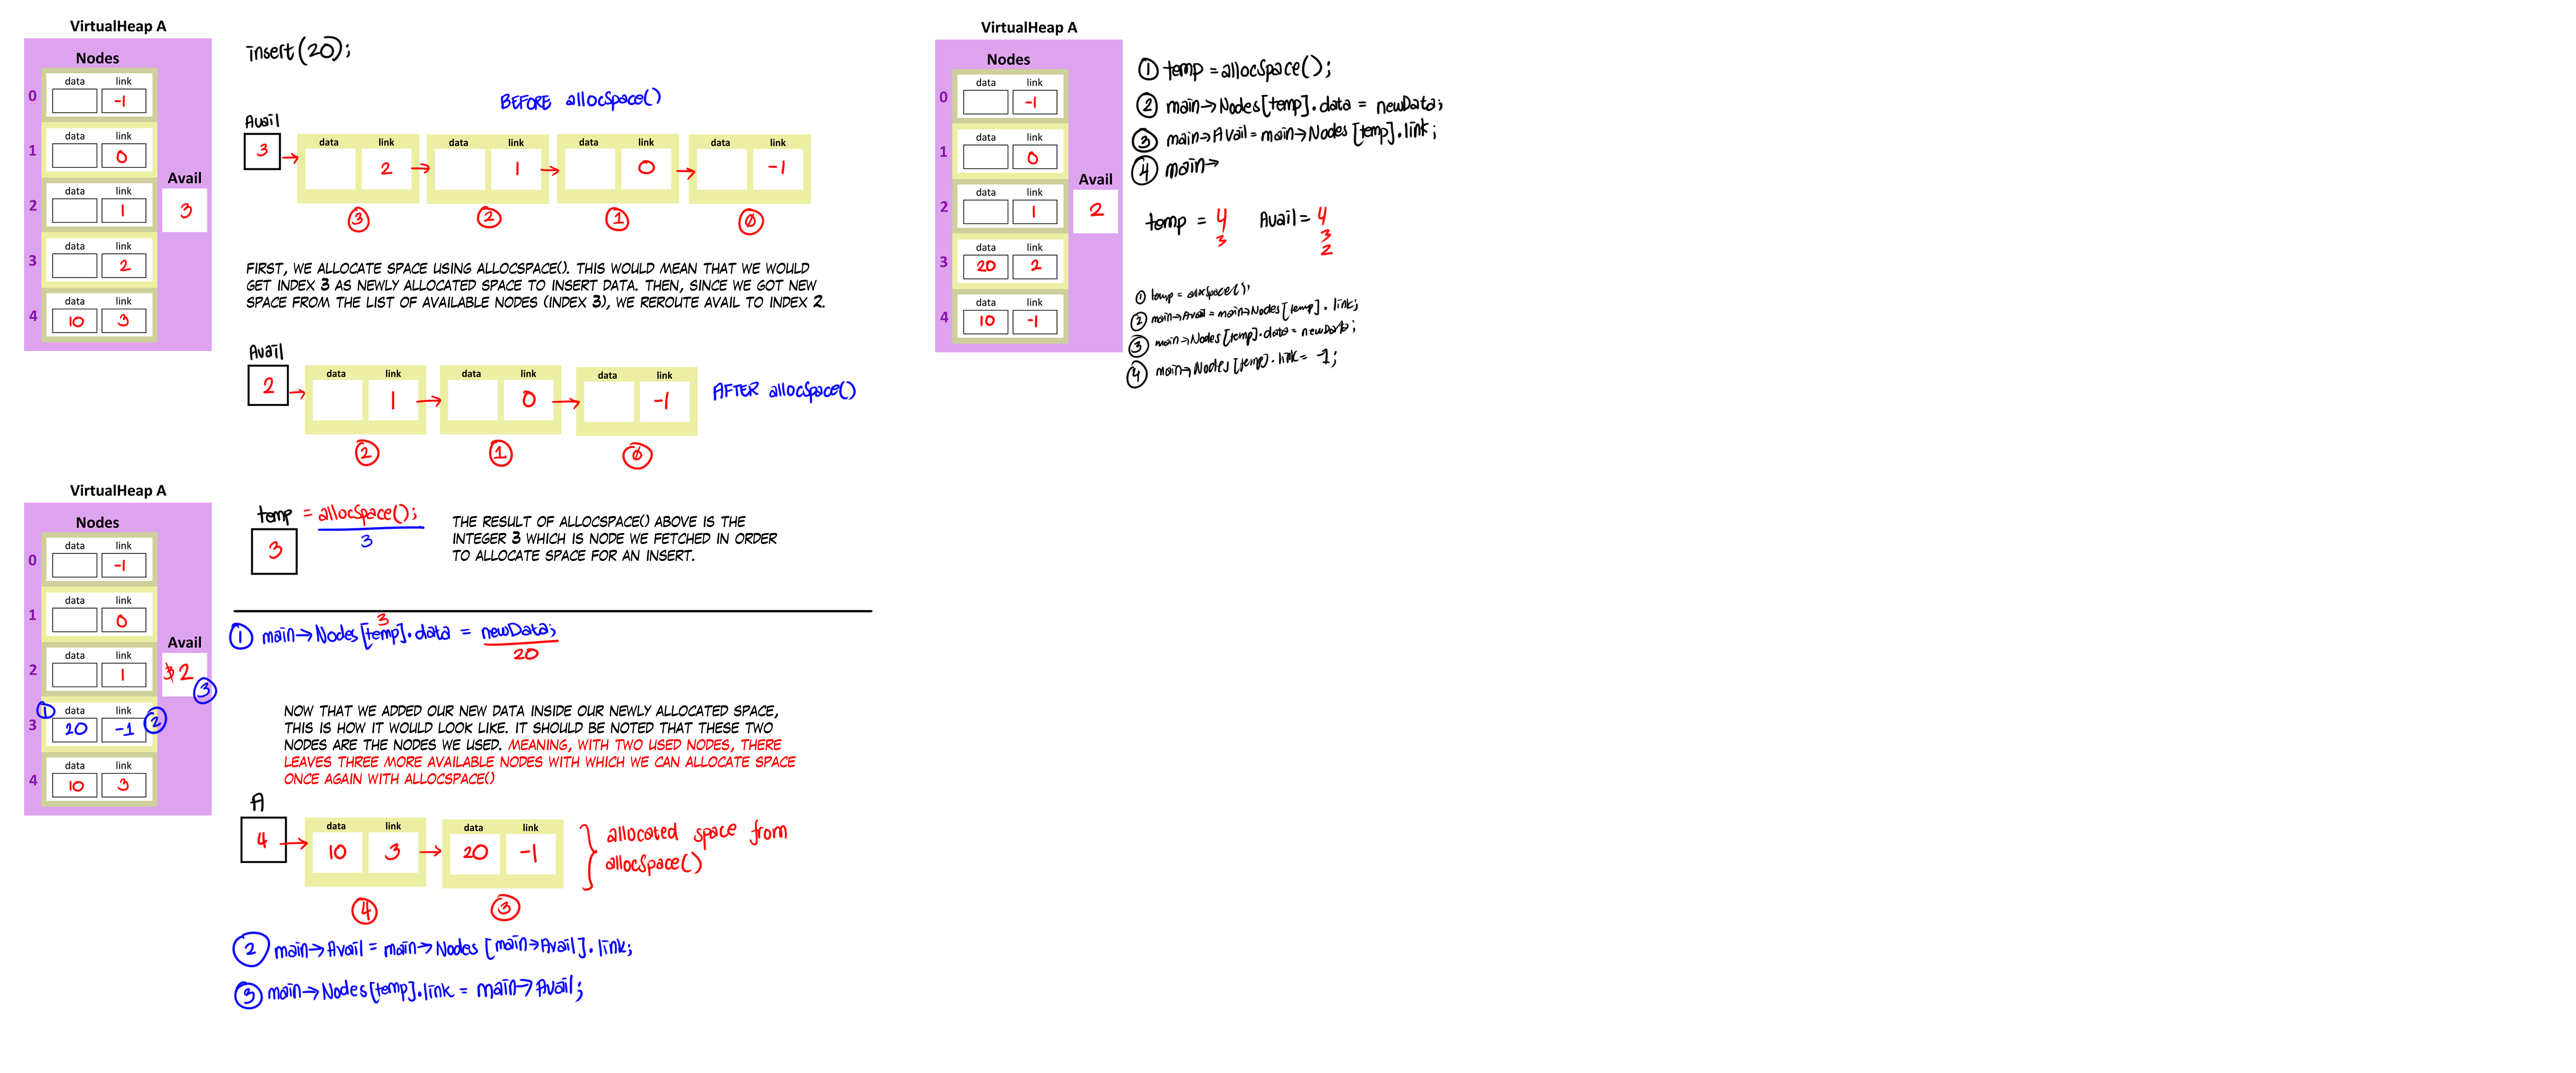 VirtualHeap A
Nodes
data link
0 -1
data link
1 0
Avail
data link
2 1 3
data link
3 2
data link
4 10 3
insert(20);
BEFORE allocSpace()
Avail
3
data link data link data link data link
2 1 0 -1
3 2 1 0
FIRST, WE ALLOCATE SPACE USING ALLOCSPACE(). THIS WOULD MEAN THAT WE WOULD
GET INDEX 3 AS NEWLY ALLOCATED SPACE TO INSERT DATA. THEN, SINCE WE GOT NEW
SPACE FROM THE LIST OF AVAILABLE NODES (INDEX 3), WE REROUTE AVAIL TO INDEX 2.
Avail
2
data link data link data link
1 0 -1
2 1 0
AFTER allocSpace()
VirtualHeap A
Nodes
data link
0 -1
data link
1 0
Avail
data link
2 1 3 2
3
1 data link 2
3 20 -1
data link
4 10 3
temp = allocSpace();
3 3
THE RESULT OF ALLOCSPACE() ABOVE IS THE
INTEGER 3 WHICH IS NODE WE FETCHED IN ORDER
TO ALLOCATE SPACE FOR AN INSERT.
3
1 main→Nodes[temp].data = newData;
20
NOW THAT WE ADDED OUR NEW DATA INSIDE OUR NEWLY ALLOCATED SPACE,
THIS IS HOW IT WOULD LOOK LIKE. IT SHOULD BE NOTED THAT THESE TWO
NODES ARE THE NODES WE USED. MEANING, WITH TWO USED NODES, THERE
LEAVES THREE MORE AVAILABLE NODES WITH WHICH WE CAN ALLOCATE SPACE
ONCE AGAIN WITH ALLOCSPACE()
A
4
data link data link
10 3 20 -1
4 3
allocated space from
allocSpace()
2 main→Avail = main→Nodes [main→Avail].link;
3 main→Nodes[temp].link = main→Avail;
VirtualHeap A
Nodes
data link
0 -1
data link
1 0
Avail
data link
2 1 2
data link
3 20 2
data link
4 10 -1
1 temp = allocSpace();
2 main→Nodes[temp].data = newData;
3 main→Avail = main→Nodes[temp].link;
4 main→
temp = 4 Avail = 4
3 3
2
1 temp = allocSpace();
2 main→Avail = main→Nodes[temp].link;
3 main→Nodes[temp].data = newData;
4 main→Nodes[temp].link = -1;